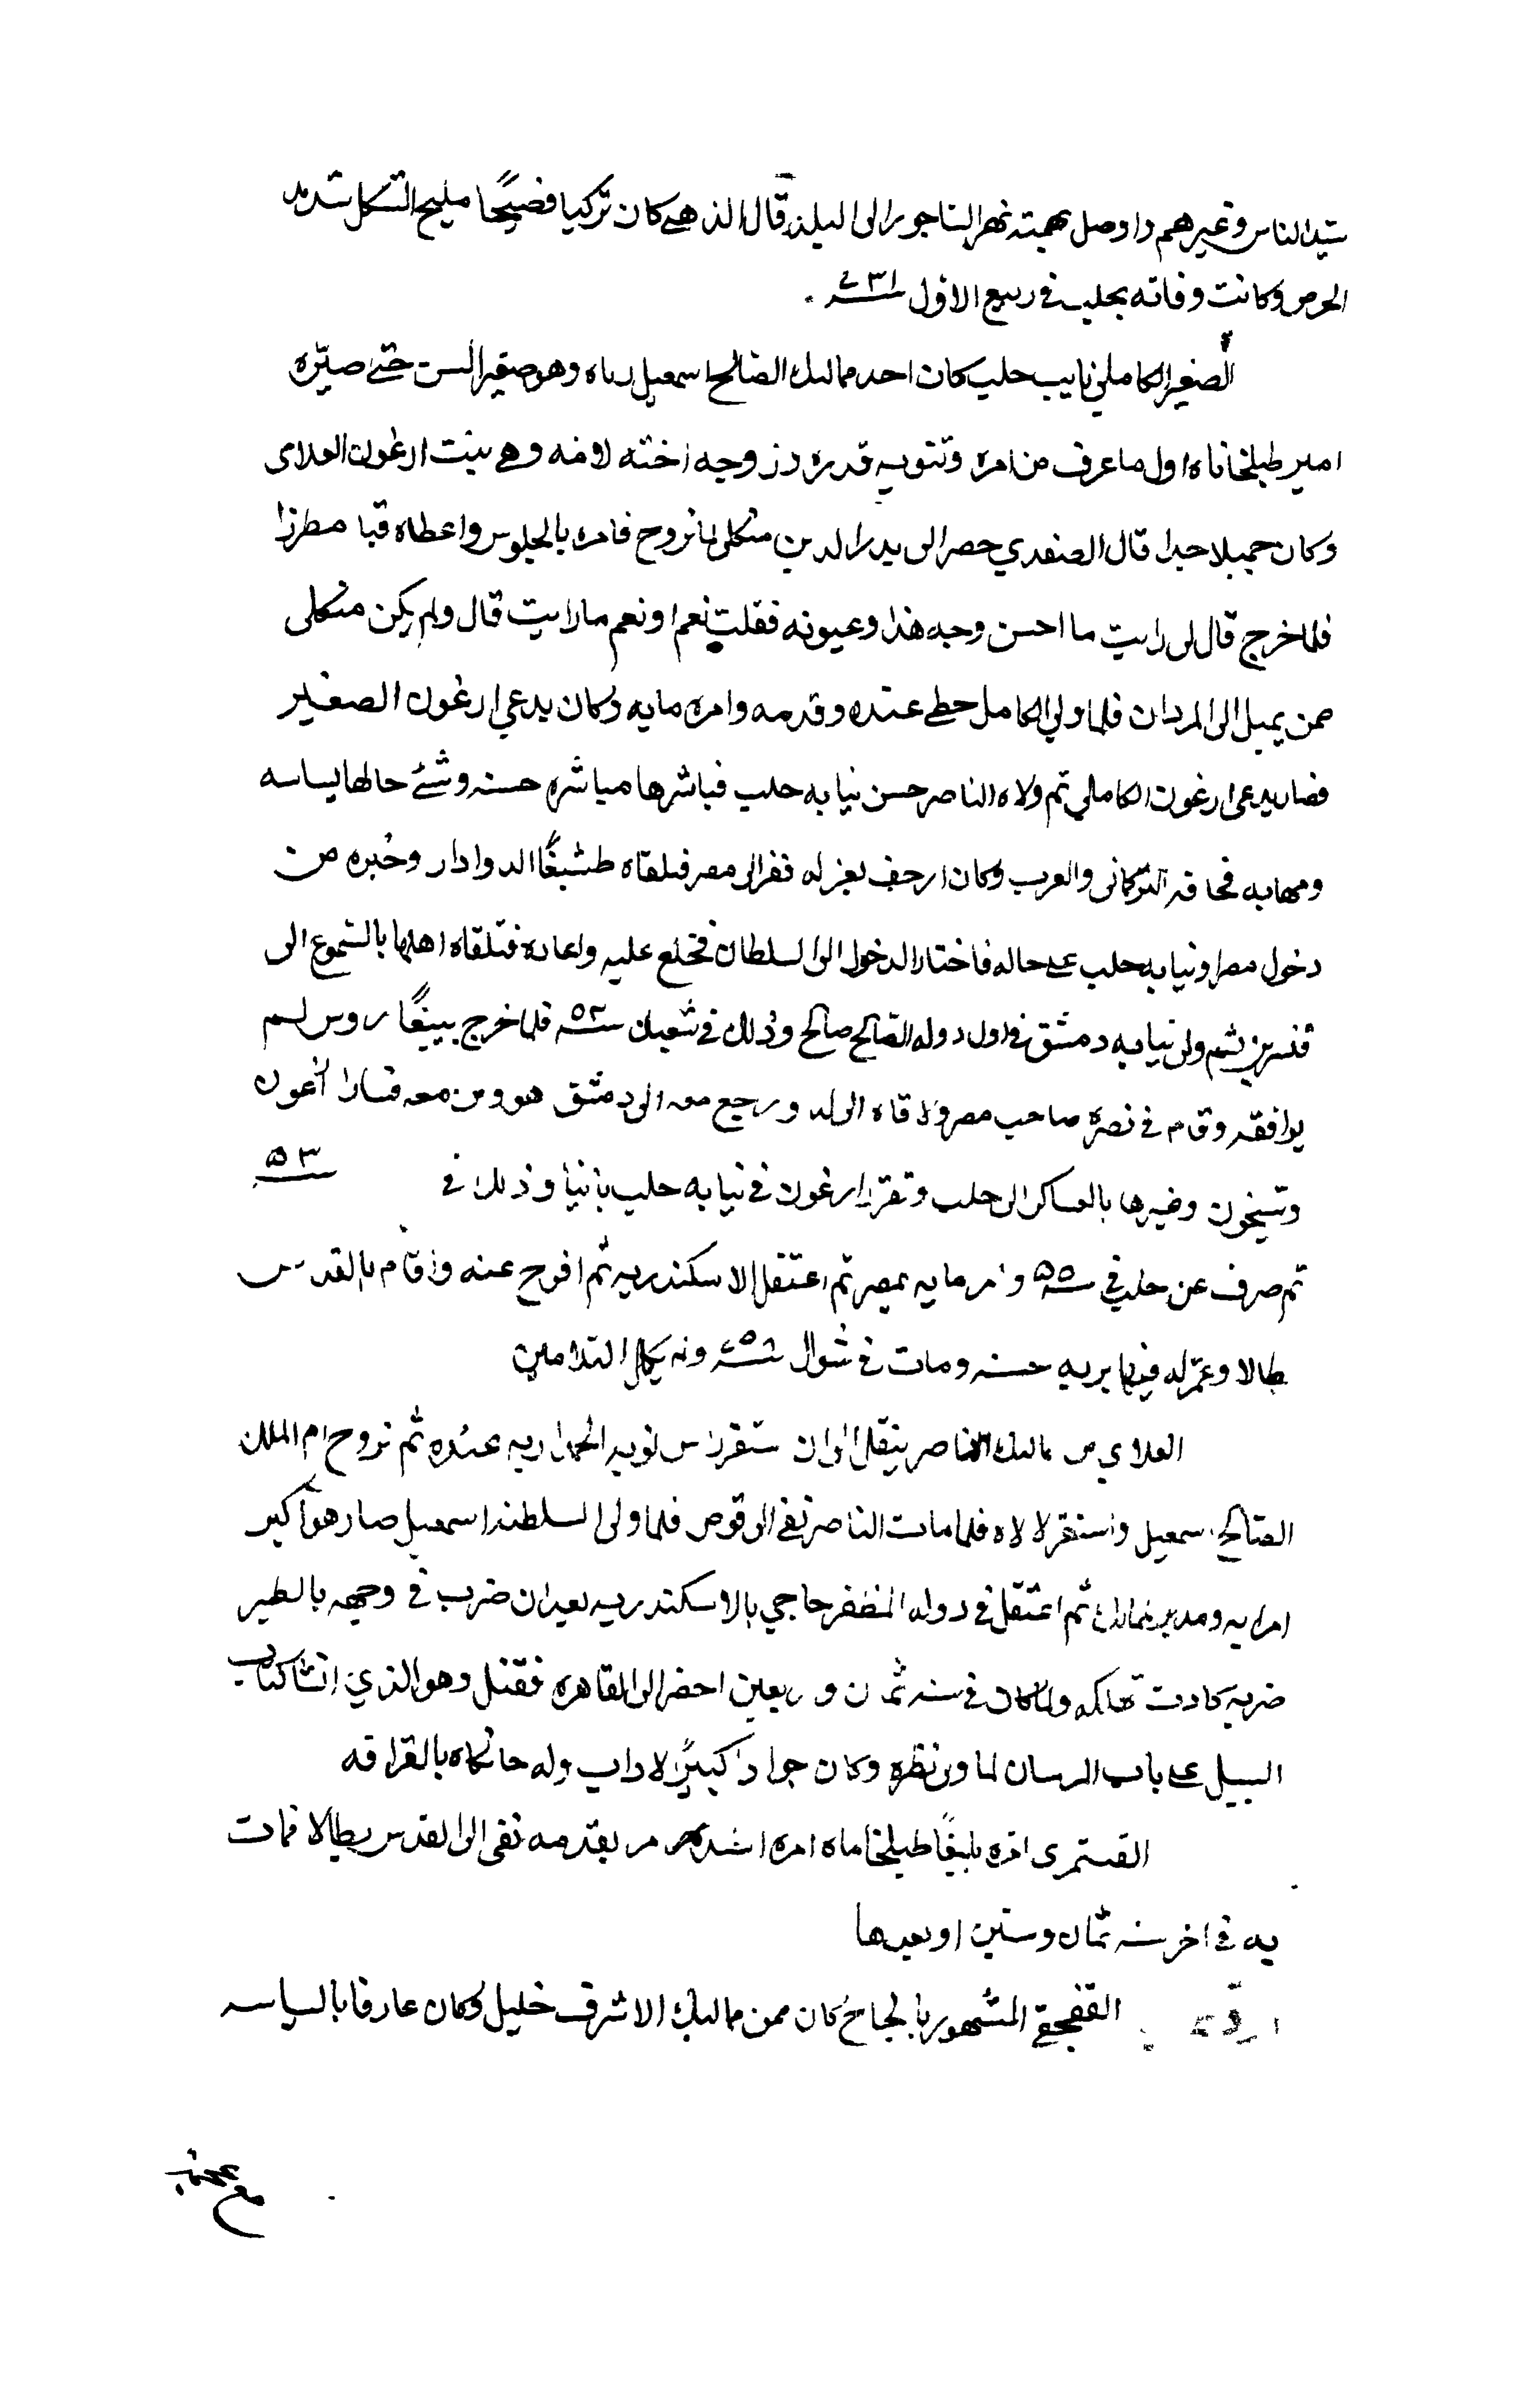 سيد الناس وغيرهم واوصل بهمته نهر الساجور الى البلد قال الذهبي كان تركيا فصيحًا مليح الشكل شديد
الحرص وكانت وفاته بحلب في ربيع الاول سنة ٧٣١ .
الصغير الكاملي نايب حلب كان احد مماليك الصالح اسمعيل رباه وهو صغير السن حتى صيّره
امير طبلخاناه اول ما عرف من امره وتنويه قدره وزوجه اخته لامه وهي بنت ارغون العلاى
وكان جميلا جدا قال الصفدي حضر الى بدر الدين منكلى لما تزوج فامره بالجلوس واعطاه قبا مطرزا
فلما خرج قال لى رايت ما احسن وجه هذا وعيونه فقلت نعم ونعم ما رايت قال ولم يكن منكلى
ممن يميل الى المردان فلما ولي الكامل حظي عنده وقدمه وامره مايه وكان يدعى ارغون الصغير
فصار يدعى ارغون الكاملي ثم ولاه الناصر حسن نيابه حلب فباشرها مباشره حسنه وشئ حالها بسياسه
ومهابه فخافه التركمانى والعرب وكان ارجف بعزله ففر الى مصر فتلقاه طشبغا الدوادار وخبره من
دخول مصر او نيابه حلب على حاله فاختار الدخول الى السلطان فخلع عليه واعاده فتلقاه اهلها بالشموع الى
قنسرين ثم ولى نيابه دمشق في اول دوله الصالح صالح وذلك في شعبان سنة ٥٢ فلما خرج بيبغًا روس لم
يوافقه وقام في نصرة صاحب مصر ولاقاه الى لد ورجع معه الى دمشق هو ومن معه فسار ارغون
وشيخون وغيرها بالعساكر الى حلب وتقرر ارغون في نيابه حلب ثانيًا وذلك في سنة ٥٣
ثم صرف عن حلب في سنة ٥٥ وامر مايه بمصر ثم اعتقل الاسكندريه ثم افرج عنه واقام بالقدس
بطالا وعمّر له فيها تربه حسنه ومات في شوال سنة ٧٥٨ ولم يكمل الثلاثين
العلاي من مماليك الناصر ينقل الى ان ستقر راس نوبه الجمداريه عنده ثم تزوج ام الملك
الصالح اسمعيل واستقر لالاه فلما مات الناصر نفى الى قوص فلما ولى السلطنه اسمعيل صار هو اكبر
امرايه ومدبر مملكته ثم اعتقل في دوله المظفر حاجي بالاسكندريه بعد ان ضرب في وجهه بالطبر
ضربه كادت تهلكه ولما كان في سنه ثمان و ربعين احضر الى القاهره فقتل وهو الذي انشا كتاب
السبيل على باب المرستان لما ولى نظره وكان جوادا كثير الاداب وله خانكاه بالقرافه
القشتمرى امره يلبغًا طبلخاناه بقدمه نفى الى القدس بطالا فمات
به في اخر سنه ثمان وستين او بعدها
القفجقي المشهور بالجاخ كان ممن مماليك الاشرف خليل وكان عارفا بالسياسه